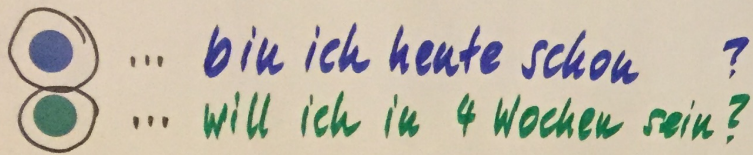 ... bin ich heute schon ?
... will ich in 4 Wochen sein?